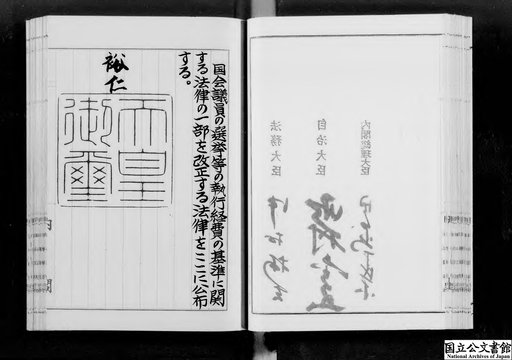 国会議員の選挙等の執行経費の基準に関
する法律の一部を改正する法律をここに公布
する。
裕仁
天皇
御璽
内閣総理大臣
自治大臣
法務大臣
内
閣
国立公文書館
National Archives of Japan